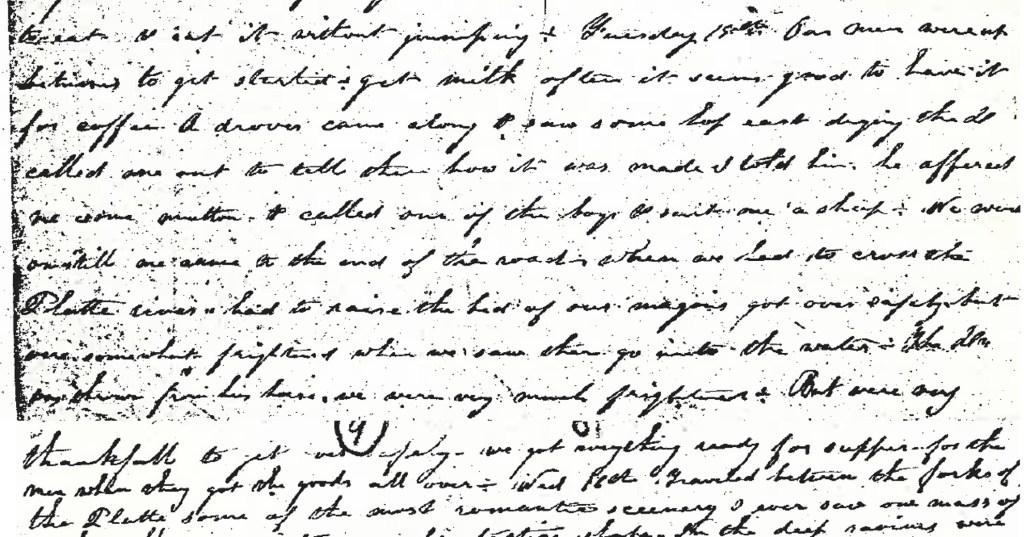 to eat & eat it without jumping. Tuesday 15th Our men were up
betimes to get started. get milk often it seems good to have it
for coffee A drover came along & saw some hop east drying they
called me out to tell them how it was made I told him. he offered
me some mutton. & called one of the boys & sent me a sheep. We were
on till we came to the end of the road where we had to cross the
Platte river. had to raise the bed of our wagons got over safely but
were somewhat frightened when we saw them go into the water. The
was thrown from his horse, we were very much frightened. But were very
thankfull to get over safely. we got everything ready for supper for the
men when they got the goods all over. Wed 16th Traveled between the forks of
the Platte some of the most romantic sceenery I ever saw one mass of
In the deep ravines were